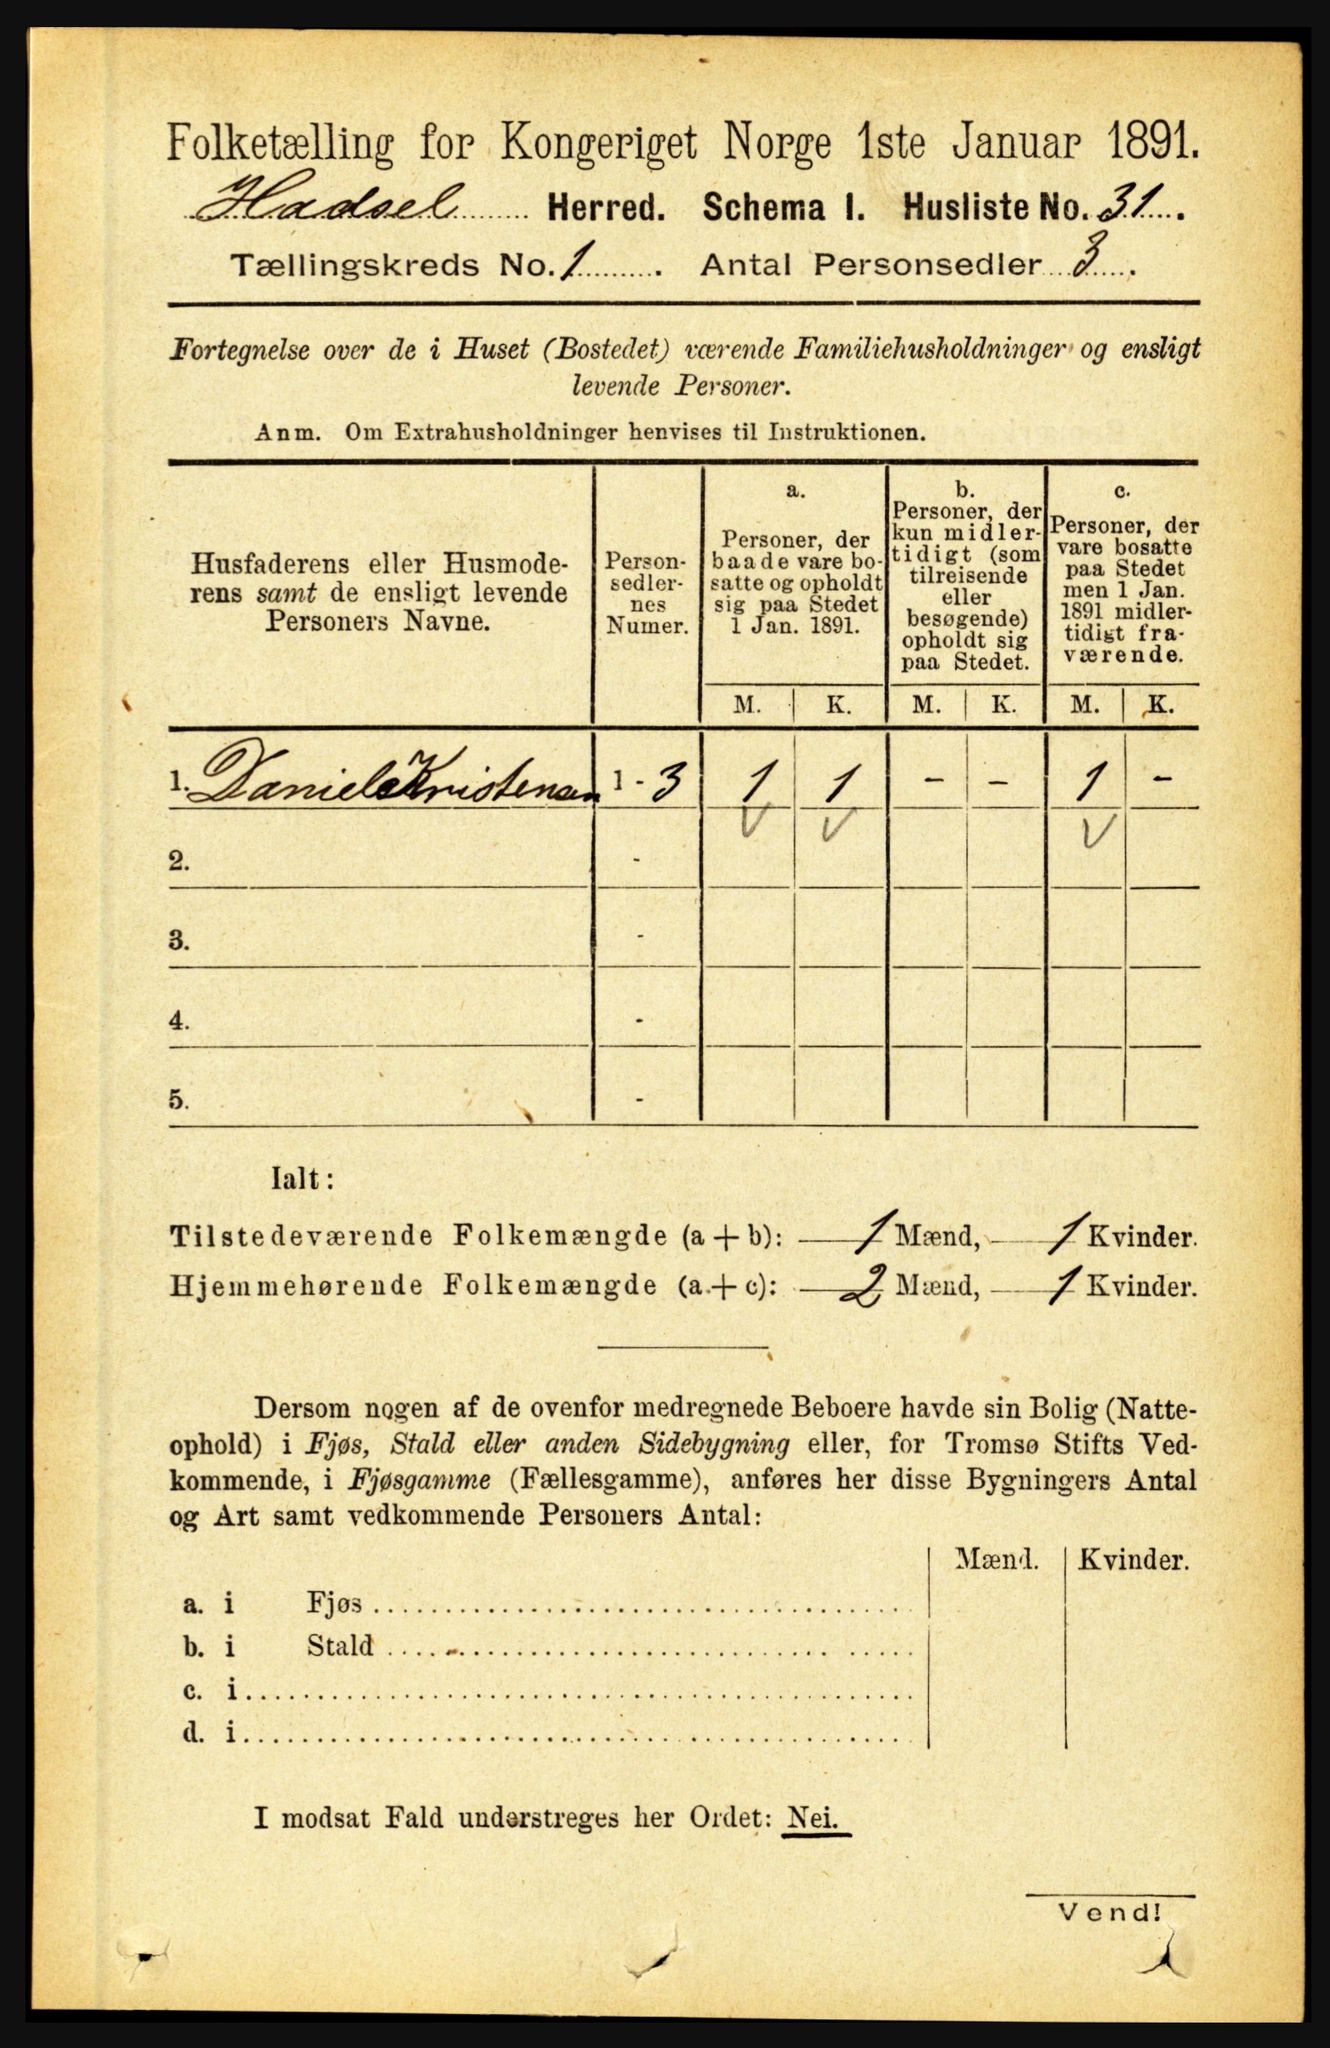 Folketælling for Kongeriget Norge 1ste Januar 1891.
Hadsel Herred. Schema I. Husliste No. 31.
Tællingskreds No. 1. Antal Personsedler 3.
Fortegnelse over de i Huset (Bostedet) værende Familiehusholdninger og ensligt
levende Personer.
Anm. Om Extrahusholdninger henvises til Instruktionen.
Husfaderens eller Husmode-
rens samt de ensligt levende
Personers Navne.
Person-
sedler-
nes
Numer.
a.
Personer, der
baade vare bo-
satte og opholdt
sig paa Stedet
1 Jan. 1891.
b.
Personer, der
kun midler-
tidigt (som
tilreisende
eller
besøgende)
opholdt sig
paa Stedet.
c.
Personer, der
vare bosatte
paa Stedet
men 1 Jan.
1891 midler-
tidigt fra-
værende.
M. K. M. K. M. K.
1. Daniel Kristensen 1 - 3 1 1 - - 1 -
2. -
3. -
4. -
5. -
Ialt:
Tilstedeværende Folkemængde (a + b): 1 Mænd, 1 Kvinder.
Hjemmehørende Folkemængde (a + c): 2 Mænd, 1 Kvinder.
Dersom nogen af de ovenfor medregnede Beboere havde sin Bolig (Natte-
ophold) i Fjøs, Stald eller anden Sidebygning eller, for Tromsø Stifts Ved-
kommende, i Fjøsgamme (Fællesgamme), anføres her disse Bygningers Antal
og Art samt vedkommende Personers Antal:
Mænd. Kvinder.
a. i Fjøs
b. i Stald
c. i
d. i
I modsat Fald understreges her Ordet: Nei.
Vend!